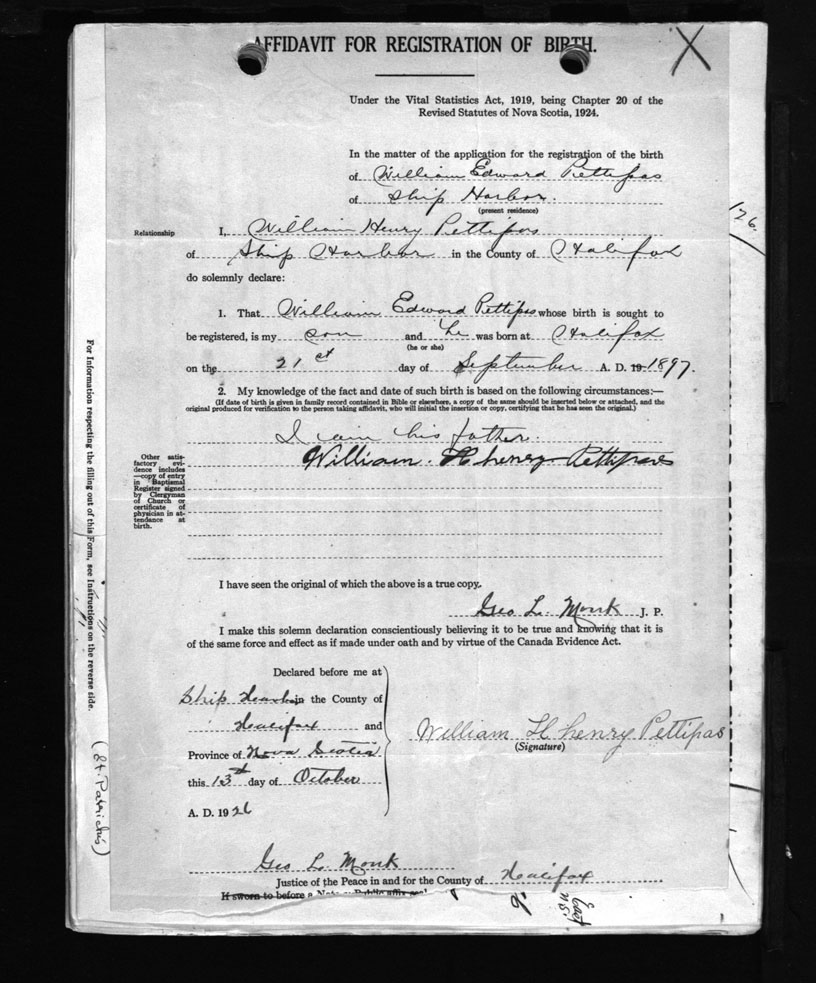 AFFIDAVIT FOR REGISTRATION OF BIRTH.
X
Under the Vital Statistics Act, 1919, being Chapter 20 of the
Revised Statutes of Nova Scotia, 1924.
In the matter of the application for the registration of the birth
of William Edward Pettipas
of Ship Harbor.
(present residence)
126.
Relationship
I, William Henry Pettipas
of Ship Harbor in the County of Halifax
do solemnly declare:
1. That William Edward Pettipas whose birth is sought to
be registered, is my son and he was born at Halifax
(he or she)
on the 21st day of September A. D. 19 1897.
2. My knowledge of the fact and date of such birth is based on the following circumstances:—
(If date of birth is given in family record contained in Bible or elsewhere, a copy of the same should be inserted below or attached, and the
original produced for verification to the person taking affidavit, who will initial the insertion or copy, certifying that he has seen the original.)
I am his father.
William. H henry Pettipas
Other satis-
factory evi-
dence includes
—copy of entry
in Baptismal
Register signed
by Clergyman
of Church or
certificate of
physician in at-
tendance at
birth.
For Information respecting the filling out of this Form, see Instructions on the reverse side.
I have seen the original of which the above is a true copy.
Geo L. Monk J. P.
I make this solemn declaration conscientiously believing it to be true and knowing that it is
of the same force and effect as if made under oath and by virtue of the Canada Evidence Act.
Declared before me at
Ship Harbor in the County of
Halifax and
Province of Nova Scotia
this 13th day of October
A. D. 1926
William H henry Pettipas
(Signature)
(St. Patricks)
Geo L. Monk
Justice of the Peace in and for the County of Halifax
If sworn to before a Notary Public affix seal
East
N.S.